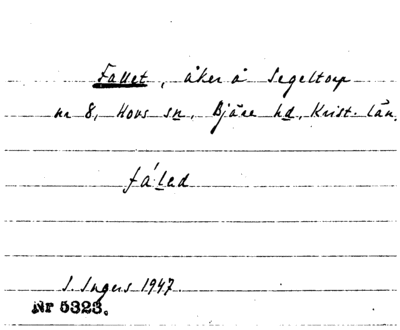 Fallet, åker å Segeltorp
nr 8, Hovs sn, Bjäre hd, Krist. län.
fáled
I. Ingers 1947.
Nr 5323.